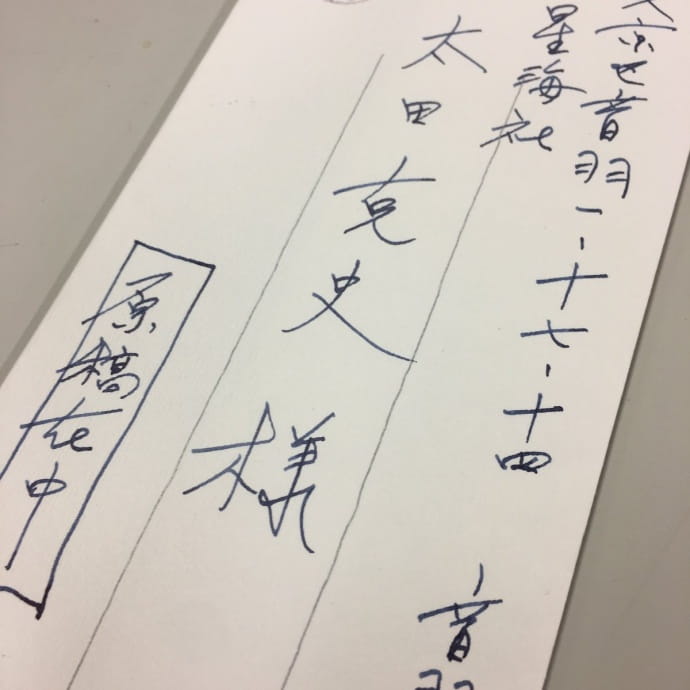 文京区音羽一-十七-十四
音羽
星海社
太田克史様
原稿在中